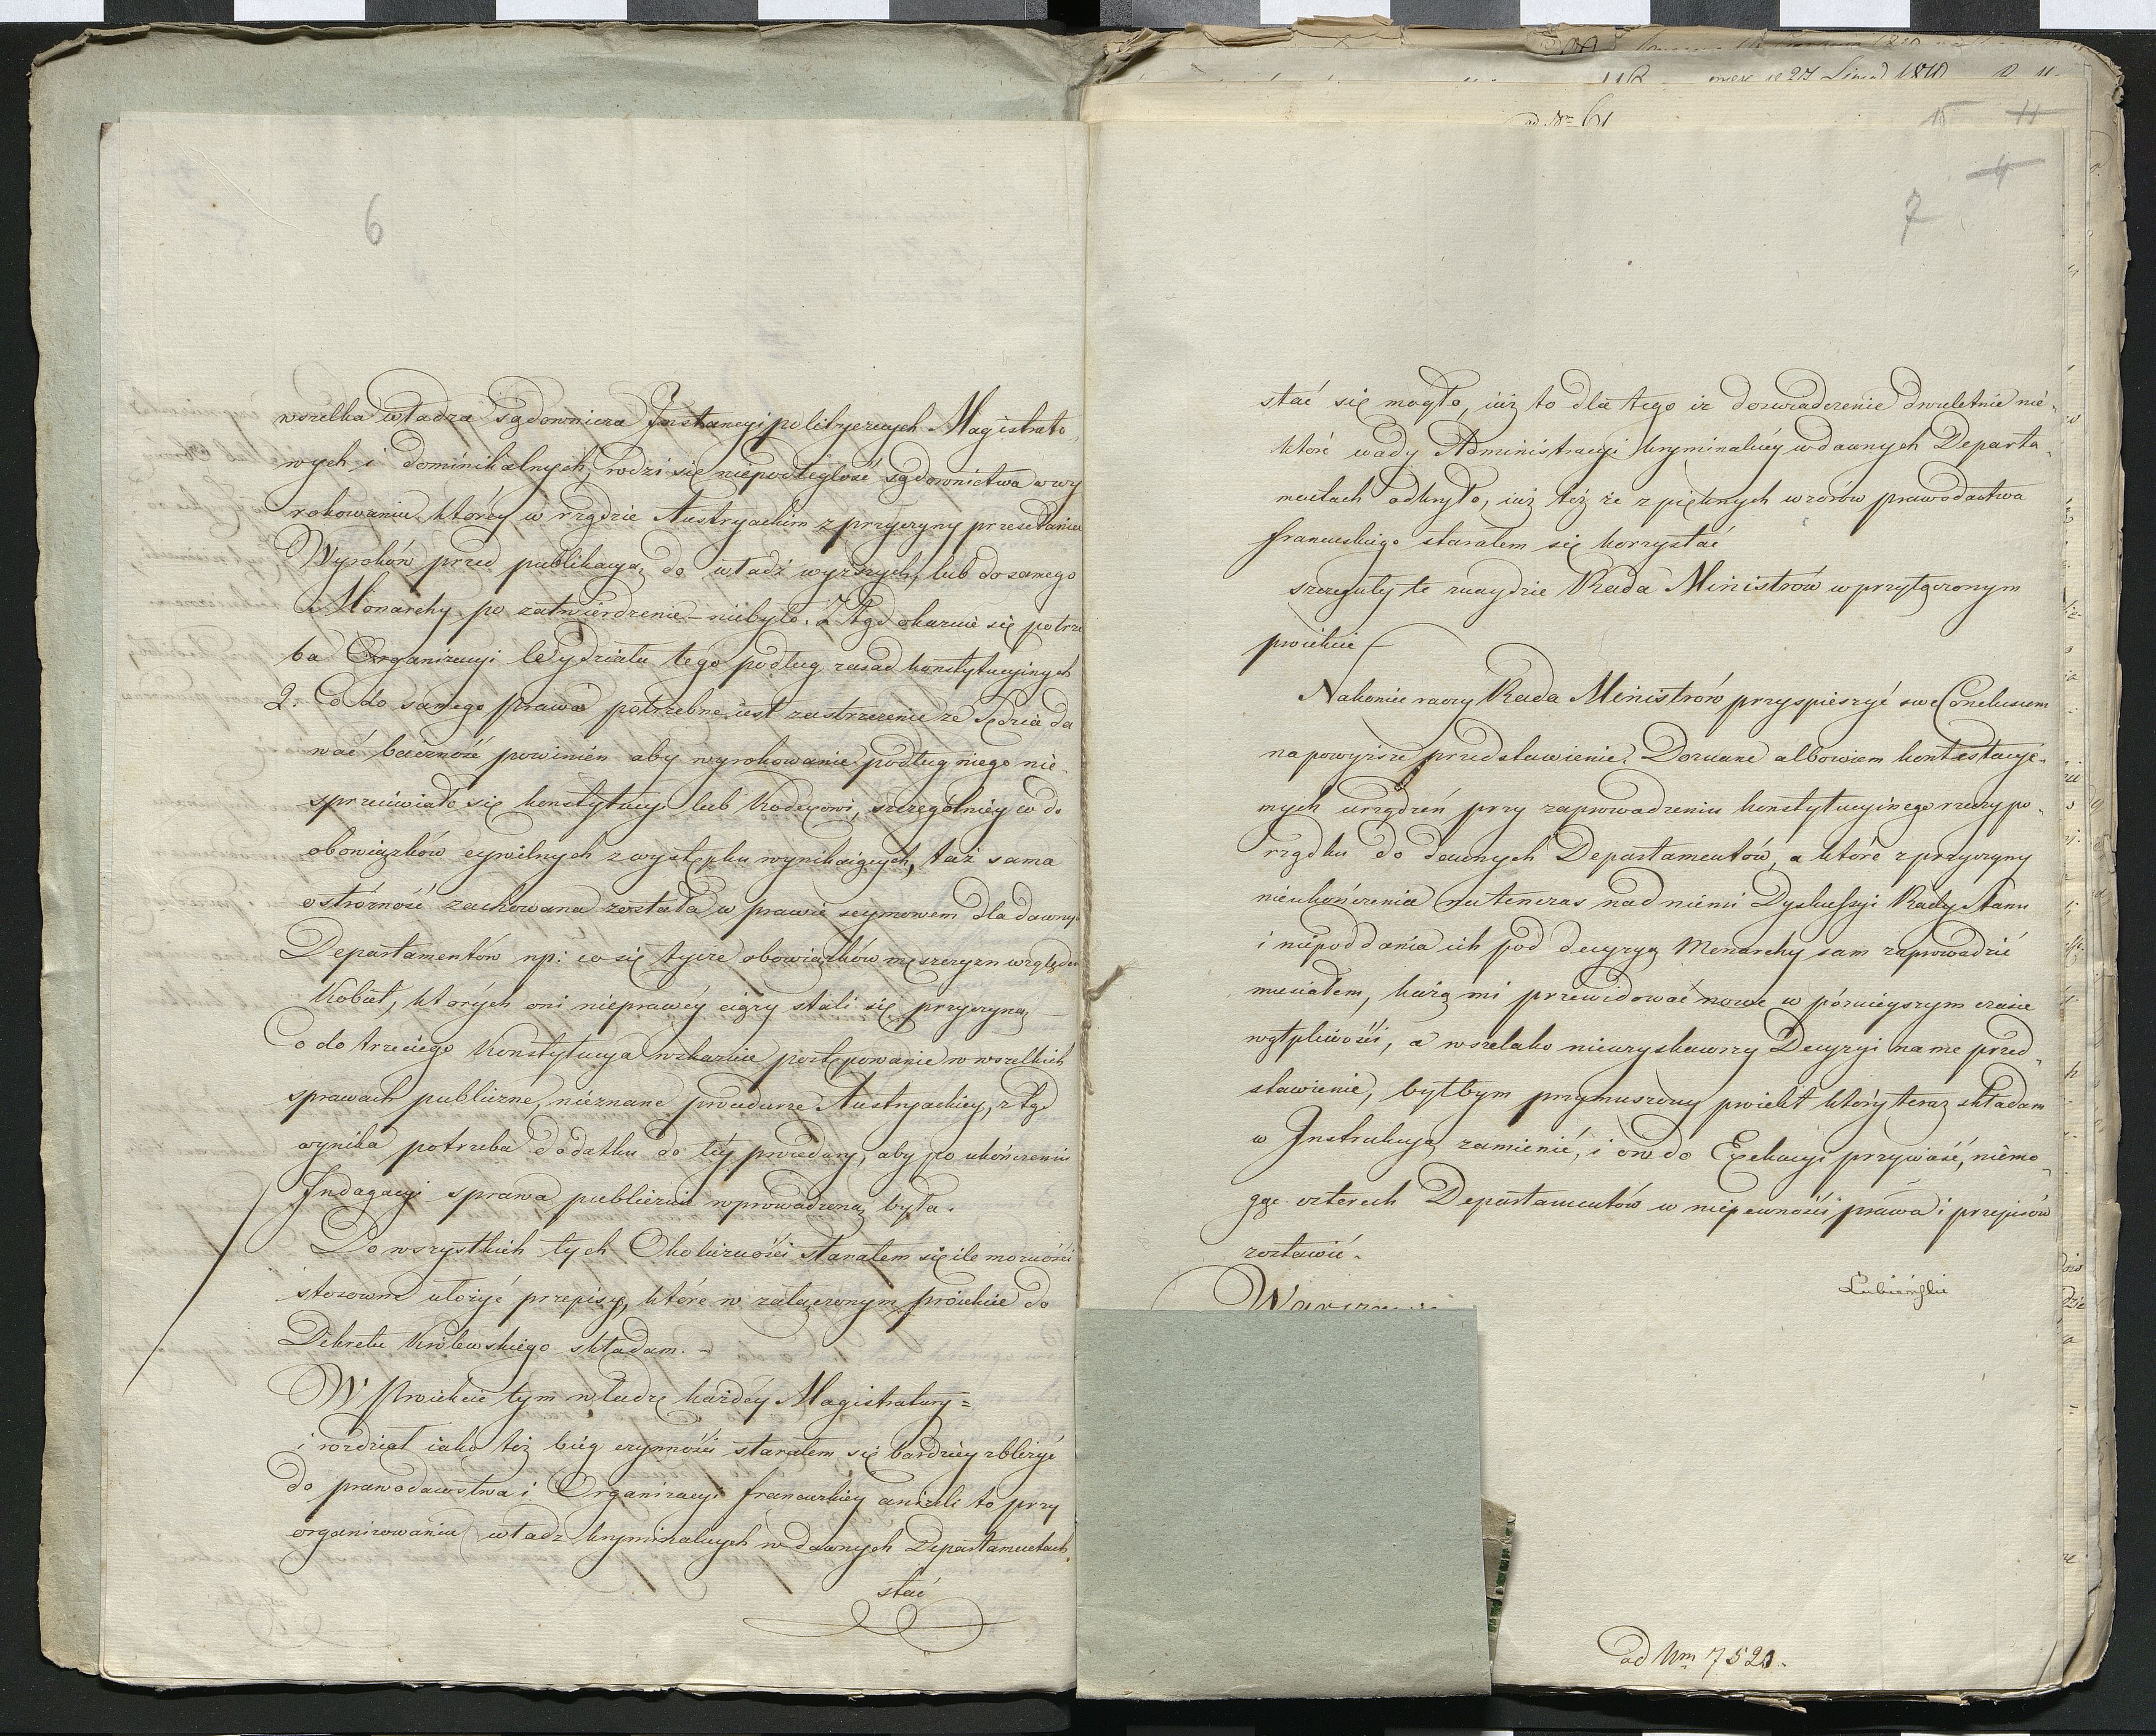 6
wszelka władza sądownicza Instancyi politycznych Magistrato
wych i dominikalnych, rodzi się niepodległość sądownictwa w wy
rokowaniu, któréy w rządzie Austryackim z przyczyny przesełania
Wyroków przed publikacyą do władz wyższych, lub do samego
Monarchy po zatwierdzenie – niebyło. Ztąd okazuie się potrze
ba Organizacyi Wydziału tego podług zasad konstytucyinych
2. Co do samego prawa potrzebne iest zastrzeżenie że Sędzia da
wać baczność powinien aby wyrokowanie podług niego nie-
sprzeciwiało się konstytucyi lub Kodexowi, szczególniéy co do
obowiązków cywilnych z występku wynikaiących, taż sama
ostróżność zachowana została w prawie seymowem dla dawnych
Departamentów np: co się tycze obowiązków męszczyzn względem
Kobiet, których oni nieprawéy ciąży stali się przyczyną –
Co do trzeciego Konstytucya wskazuie postępowanie w wszelkich
sprawach publiczne, nieznane procedurze Austryackiéy, ztąd
wynika potrzeba dodatku do téy procedury, aby po ukończeniu
Indagacyi sprawa publicznie wprowadzoną była.
Do wszystkich tych Okoliczności starałem się ile możności
stosowne ułożyć przepisy, które w załączonym proiekcie do
Dekretu Królewskiego składam. –
W Proiekcie tym władzę każdéy Magistratury =
i rozdział iako też bieg czynności starałem się bardziéy zbliżyć
do prawodawstwa i Organizacyi francuzkiéy aniżeli to przy
organizowaniu władz kryminalnych w dawnych Departamentach
stać
27 1810
ad Nr 61
11
4
7
stać się mogło, iuż to dla tego iż doświadczenie dwuletnie nie-
które wady Administracyi kryminalnéy w dawnych Departa-
mentach odkryło, iuż też że z pięknych wzorów prawodawstwa
francuskiego starałem się korzystać
szczegóły te znaydzie Rada Ministrów w przyłączonym
proiekcie
Nakoniec raczy Rada Ministrów przyspieszyć swe Conclusum
na powyższe przedstawienie. Doznane albowiem kontestacye
mych urządzeń przy zaprowadzeniu konstytucyinego rzeczy po-
rządku do dawnych Departamentów, a które z przyczyny
nieukończenia na tenczas nad niemi Dyskussyi Rady Stanu
i niepoddania ich pod decyzyą Monarchy sam zaprowadzić
musiałem, każą mi przewidować nowe w póznieyszym czasie
wątpliwości, a wszelako nieuzyskawszy Decyzyi na me przed-
stawienie, byłbym przymuszony proiekt który teraz składam
w Instrukcyą zamienić, i ono do Exekucyi przywieść, niemo-
gąc czterech Departamentów w niepewności prawa i przepisów
zostawić.
Łubieński
ad Nrm 7520.